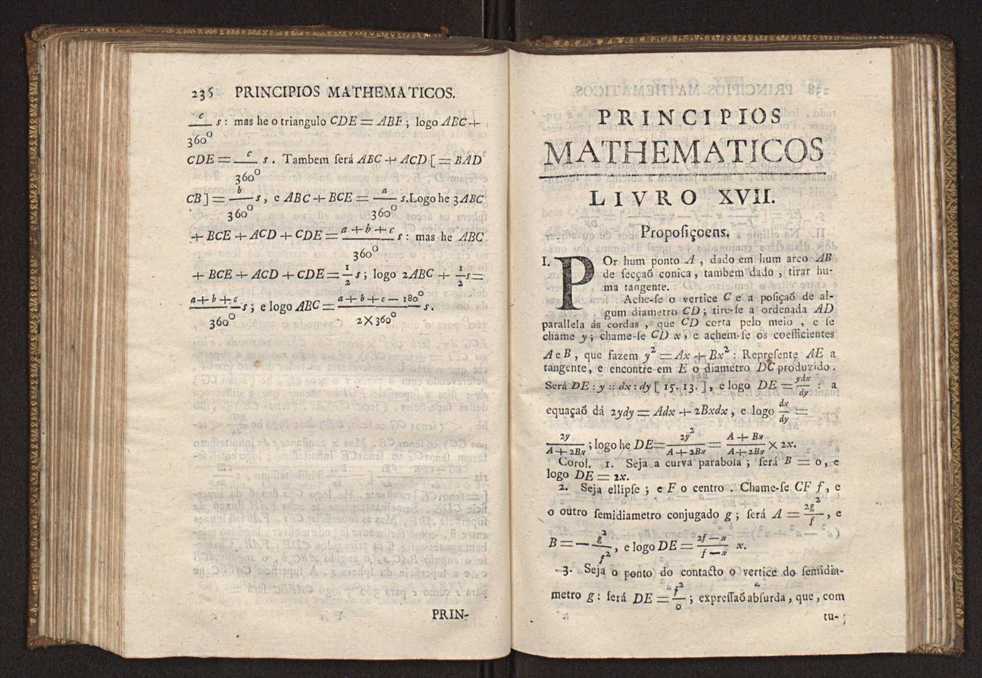 236 PRINCIPIOS MATHEMATICOS.
c/360° s: mas he o triangulo CDE = ABF; logo ABC +
CDE = c/360° s. Tambem ſerá ABC + ACD [= BAD
CB] = b/360° s, e ABC + BCE = a/360° s. Logo he 3ABC
+ BCE + ACD + CDE = a + b + c/360° s: mas he ABC
+ BCE + ACD + CDE = 1/2 s; logo 2ABC + 1/2 s =
a + b + c/360° s; e logo ABC = a + b + c — 180°/2 X 360° s.
PRIN-
PRINCIPIOS
MATHEMATICOS
LIVRO XVII.
Propoſiçoens.
I. POr hum ponto A, dado em hum arco AB
de ſecçaõ conica, tambem dado, tirar hu-
ma tangente.
Ache-ſe o vertice C e a poſiçaõ de al-
gum diametro CD; tire-ſe a ordenada AD
parallela ás cordas, que CD corta pelo meio, e ſe
chame y; chame-ſe CD x, e achem-ſe os coefficientes
A e B, que fazem y² = Ax + Bx²: Repreſente AE a
tangente, e encontre em E o diametro DC produzido.
Será DE : y :: dx : dy [15. 13.], e logo DE = ydx/dy : a
equaçaõ dá 2ydy = Adx + 2Bxdx, e logo dx/dy =
2y/A + 2Bx; logo he DE = 2y²/A + 2Bx = A + Bx/A + 2Bx X 2x.
Corol. 1. Seja a curva parabola; ſerá B = 0, e
logo DE = 2x.
2. Seja ellipſe; e F o centro. Chame-ſe CF f, e
o outro ſemidiametro conjugado g; ſerá A = 2g²/f, e
B = — g²/f², e logo DE = 2f — x/f — x x.
3. Seja o ponto do contacto o vertice do ſemidia-
metro g: ſerá DE = f²/0; expreſſaõ abſurda, que, com
tu-